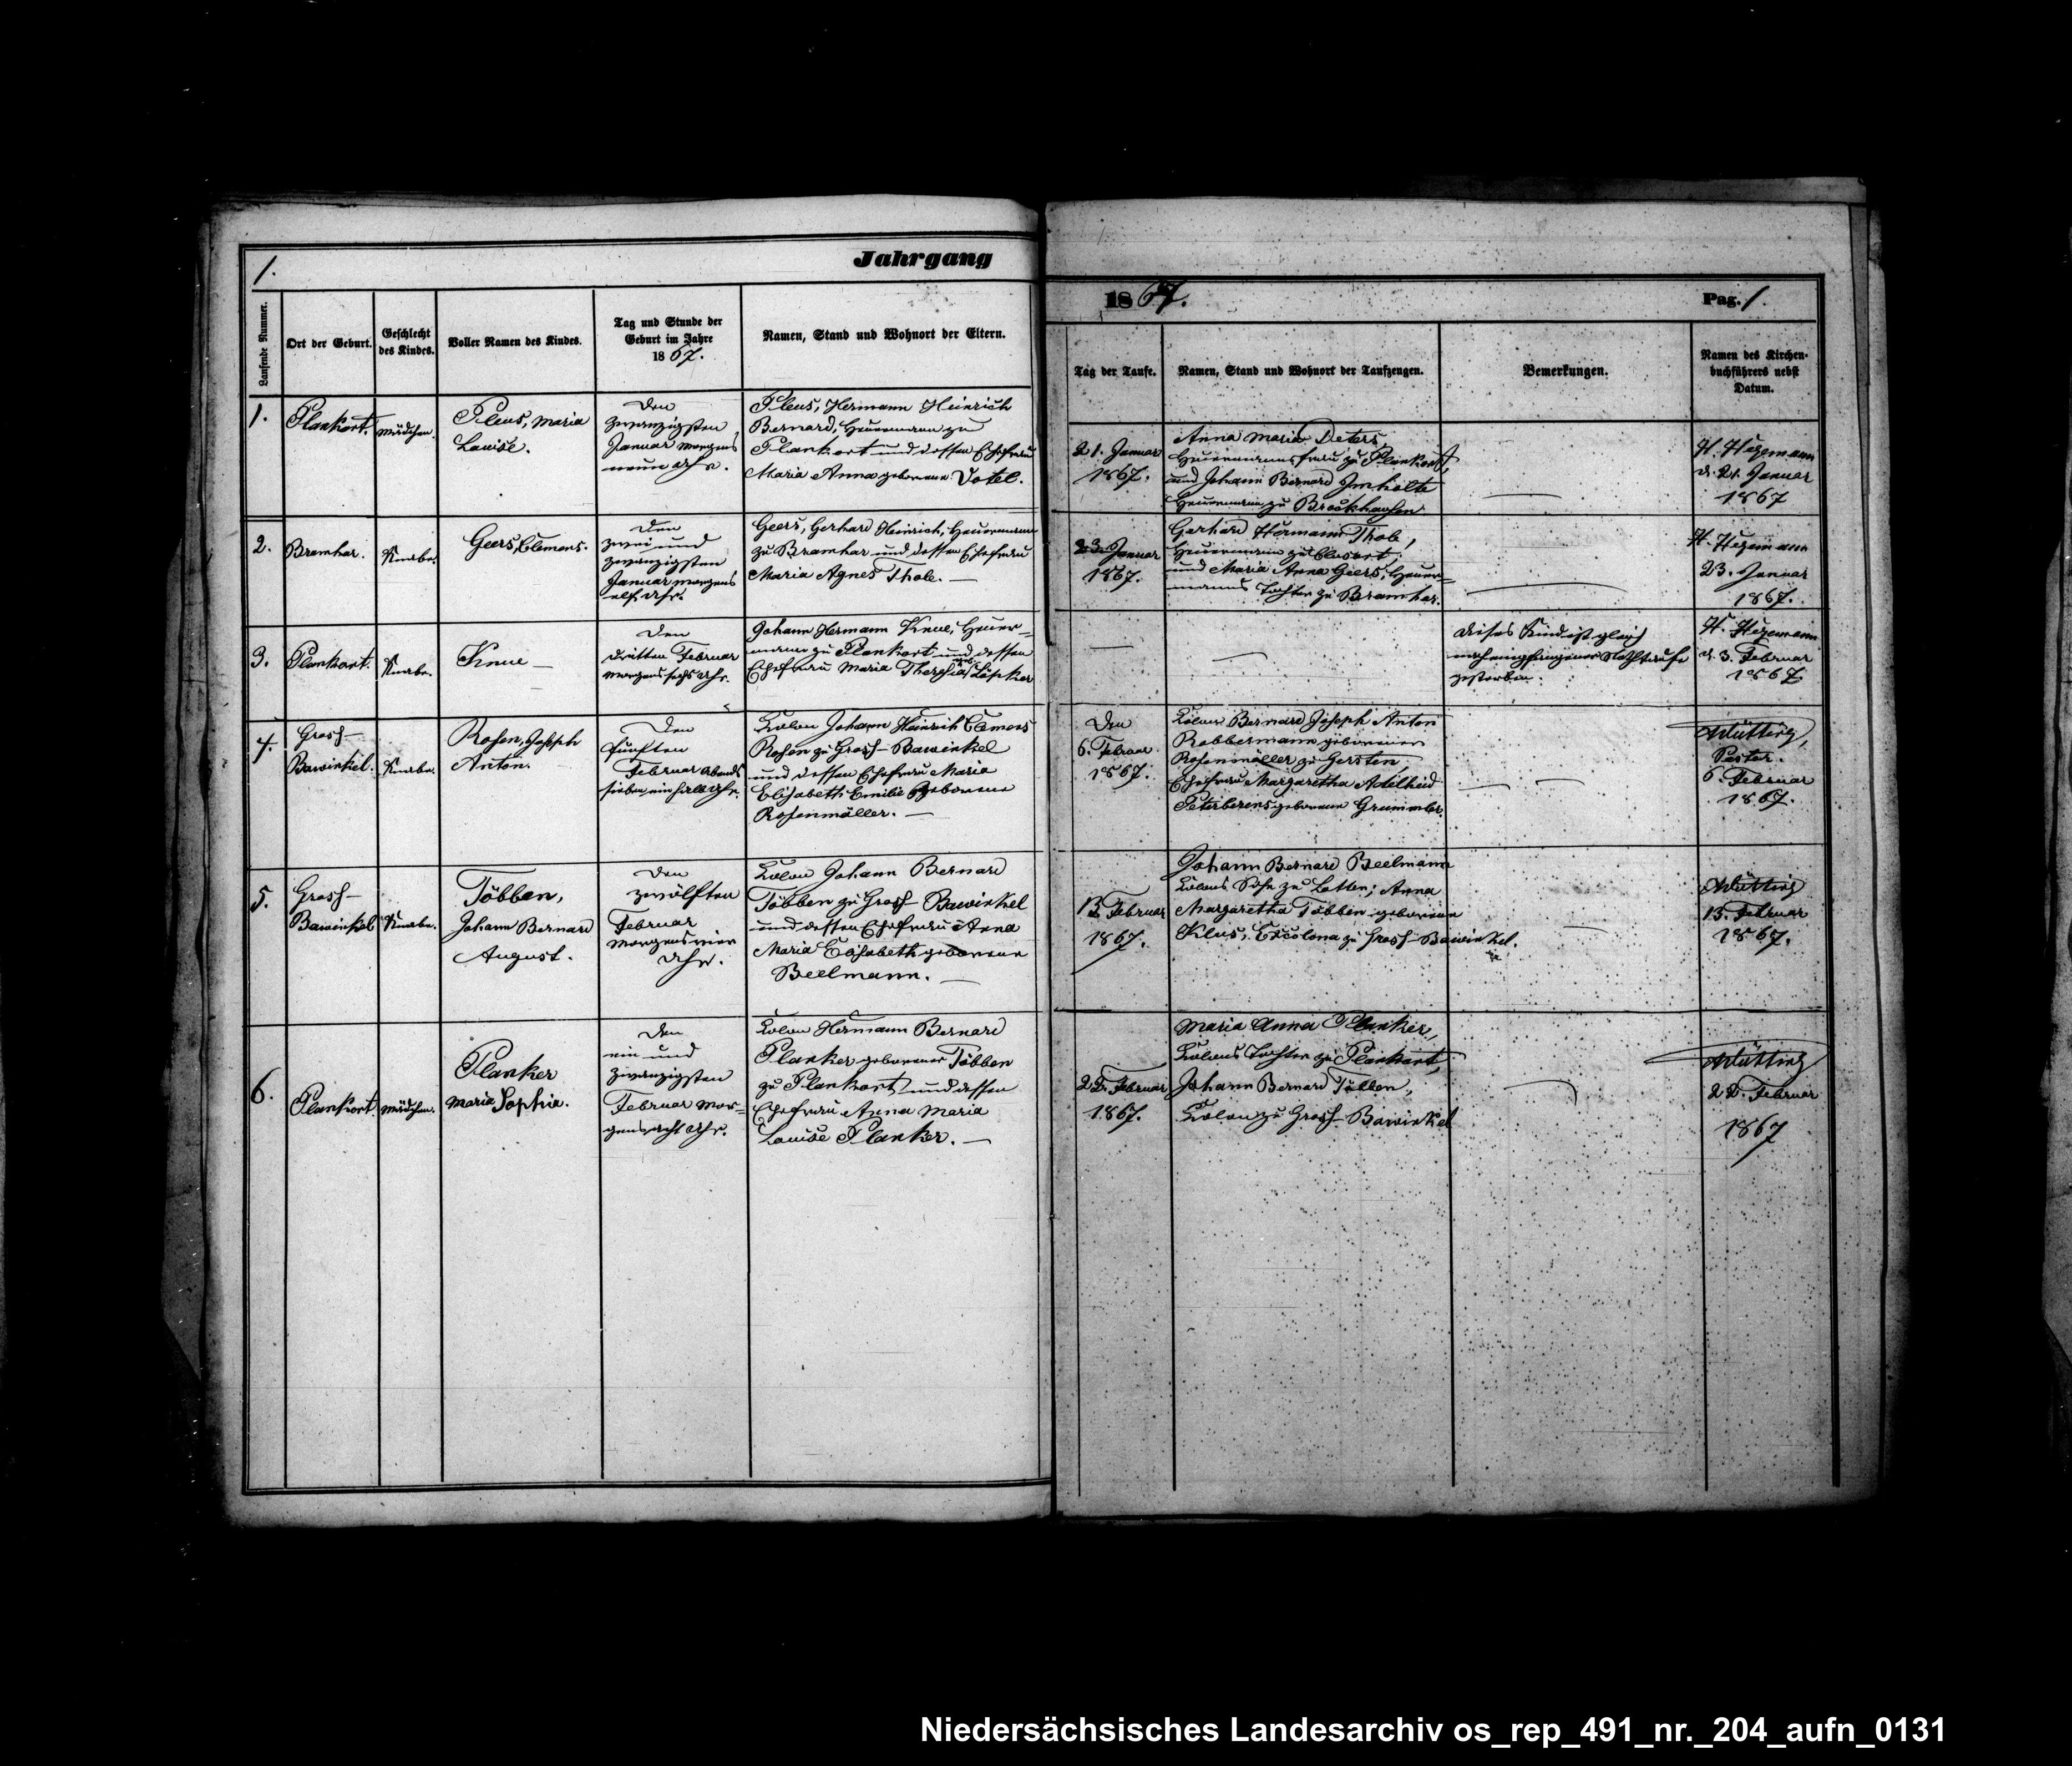 1.
Jahrgang
1867.
Pag. 1.
Laufende Nummer.
Ort der Geburt.
Geschlecht
des Kindes.
Voller Namen des Kindes.
Tag und Stunde der
Geburt im Jahre
1867.
Namen, Stand und Wohnort der Eltern.
Tag der Taufe.
Namen, Stand und Wohnort der Taufzeugen.
Bemerkungen.
Namen des Kirchen-
buchführers nebst
Datum.
1.
Plankort.
Mädchen.
Pleus, Maria
Louise.
Den
zwanzigsten
Januar morgens
neun Uhr.
Pleus, Hermann Heinrich
Bernard, Heuermann zu
Plankort und dessen Ehefrau
Maria Anna geborene Votel.
21. Januar
1867.
Anna Maria Deters,
Heuermannsfrau zu Plankort,
und Johann Bernard Imholte
Heuermann zu Brockhausen
H. Hegemann
d. 21. Januar
1867
2.
Bramhar.
Knabe.
Geers, Clemens.
Den
zwei und
zwanzigsten
Januar morgens
elf Uhr.
Geers, Gerhard Heinrich, Heuermann
zu Bramhar und dessen Ehefrau
Maria Agnes Thole. —
23. Januar
1867.
Gerhard Hermann Thole,
Heuermann zu Clusort,
und Maria Anna Geers, Heuer-
manns Tochter zu Bramhar.
H. Hegemann
23. Januar
1867.
3.
Plankort.
Knabe.
Knue —
Den
dritten Februar
morgens sechs Uhr.
Johann Hermann Knue, Heuer-
mann zu Plankort und dessen
Ehefrau Maria Thersia geb. Lüpker
Dieses Kind ist gleich
nach empfangener Nothtaufe
gestorben.
H. Hegemann
d. 3. Februar
1867.
4.
Gross-
Bawinkel.
Knabe.
Rosen, Joseph
Anton.
Den
fünften
Februar abends
sieben ein halb Uhr.
Colon Johann Heinrich Clemens
Rosen zu Gross-Bawinkel
und dessen Ehefrau Maria
Elisabeth Emilie geborene
Rosenmöller. —
Den
6. Februar
1867.
Colon Bernard Joseph Anton
Robbermann geborener
Rosenmöller zu Gersten,
Ehefrau Margaretha Adelheid
Peterberens geborene Grummler.
Pastor.
6. Februar
1867.
5.
Gross-
Bawinkel
Knabe.
Többen,
Johann Bernard
August.
Den
zwölften
Februar
morgens vier
Uhr.
Colon Johann Bernard
Többen zu Gross-Bawinkel
und dessen Ehefrau Anna
Maria Elisabeth geborene
Beelmann. —
13. Februar
1867.
Johann Bernard Beelmann
Colons Sohn zu Lotten; Anna
Margaretha Többen geborene
Klus, Excolona zu Gross-Bawinkel.
13. Februar
1867.
6.
Plankort.
Mädchen.
Planker
Maria Sophia.
Den
ein und
zwanzigsten
Februar mor-
gens acht Uhr.
Colon Hermann Bernard
Planker geborener Többen
zu Plankort und dessen
Ehefrau Anna Maria
Louise Planker. —
22. Februar
1867.
Maria Anna Planker,
Colons Tochter zu Plankort,
Johann Bernard Többen,
Colon zu Gross-Bawinkel
22. Februar
1867
Niedersächsisches Landesarchiv os_rep_491_nr._204_aufn_0131